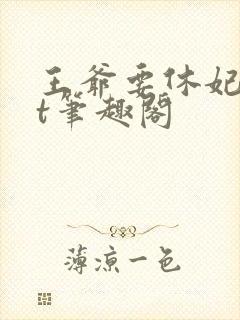 王爷要休妃
t笔趣阁
薄凉一色